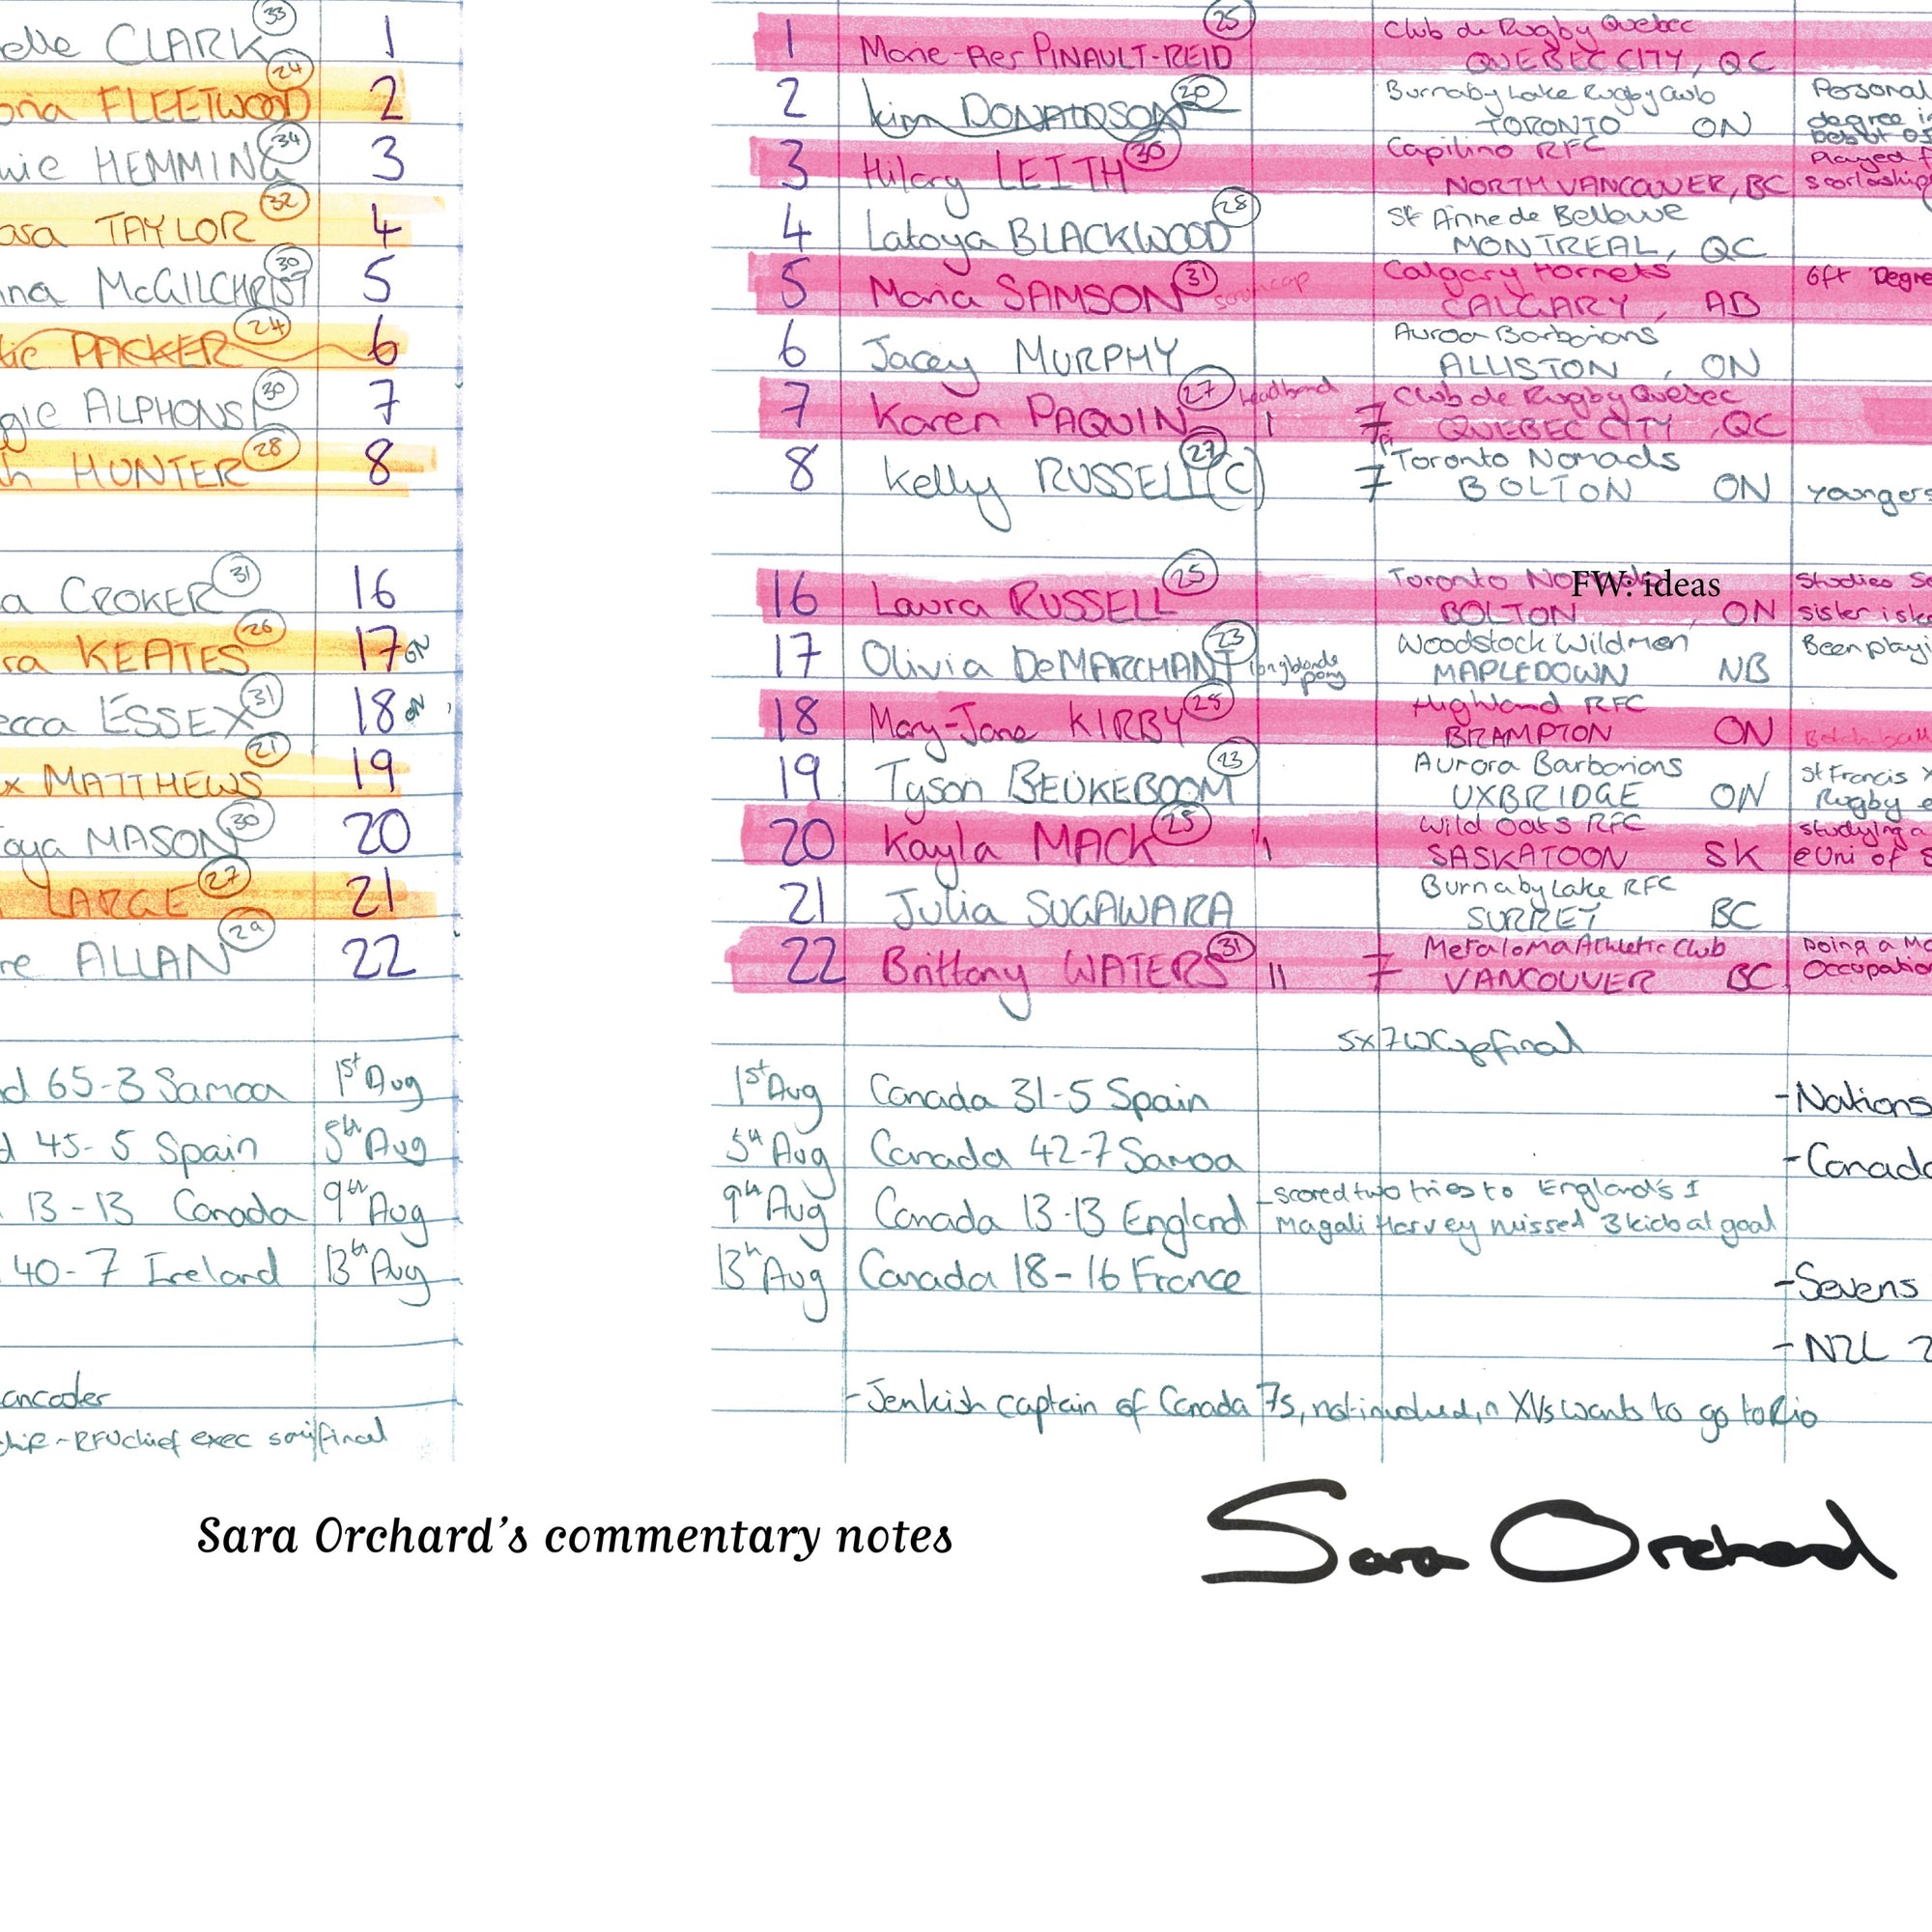 elle CLARK 33 1
oria FLEETWOOD 24 2
HEMMING 34 3
asa TAYLOR 32 4
na McGILCHRIST 30 5
PACKER 24 6
gie ALPHONSI 30 7
h HUNTER 28 8
a CROKER 31 16
ra KEATES 26 17 ON
ecca ESSEX 31 18 ON
x MATTHEWS 21 19
oya MASON 30 20
LARGE 27 21
re ALLAN 29 22
d 65-3 Samoa 1st Aug
d 45-5 Spain 5th Aug
13-13 Canada 9th Aug
40-7 Ireland 13th Aug
ancaster
ship - RFU chief exec final
1 Marie-Pier PINAULT-REID 25 Club de Rugby Quebec
QUEBEC CITY, QC
2 Kim DONALDSON 20 Burnaby Lake Rugby Club Personal
TORONTO ON degree i
Debut
3 Hilary LEITH 30 Capilino RFC Played f
NORTH VANCOUVER, BC
4 Latoya BLACKWOOD 28 St Anne de Bellvue
MONTREAL, QC
5 Maria SAMSON 31 scrumcap Calgary Hornets 6ft Degre
CALGARY, AB
6 Jacey MURPHY Auroa Barbarians
ALLISTON, ON
7 Karen PAQUIN 27 headband 1 7 Club de Rugby Quebec
QUEBEC CITY, QC
8 Kelly RUSSELL (C) 27 7 Toronto Nomads
BOLTON ON youngers
16 Laura RUSSELL 25 Toronto Nomads Studies Sc
FW: ideas
BOLTON, ON sister is
17 Olivia DeMARCHANT 23 long blonde pony Woodstock Wildmen Been playi
MAPLEDOWN NB
18 Mary-Jane KIRBY 25 Highland RFC
BRAMPTON ON
19 Tyson BEUKEBOOM 23 Aurora Barbarians St Francis X
UXBRIDGE ON Rugby
20 Kayla MACK 25 1 Wild Oats RFC studying a
SASKATOON SK @ Uni of S
21 Julia SUGAWARA Burnaby Lake RFC
SURREY BC
22 Brittany WATERS 31 11 7 Metaloma Athletic Club Doing a Ma
VANCOUVER BC Occupation
5x7 WCup final
1st Aug Canada 31-5 Spain -Nations
5th Aug Canada 42-7 Samoa -Canada
9th Aug Canada 13-13 England -scored two tries to England's 1
Magali Harvey missed 3 kicks at goal
13th Aug Canada 18-16 France -Sevens
-NZL 2
-Jenkish captain of Canada 7s, not involved in XVs wants to go to Rio
Sara Orchard's commentary notes
Sara Orchard